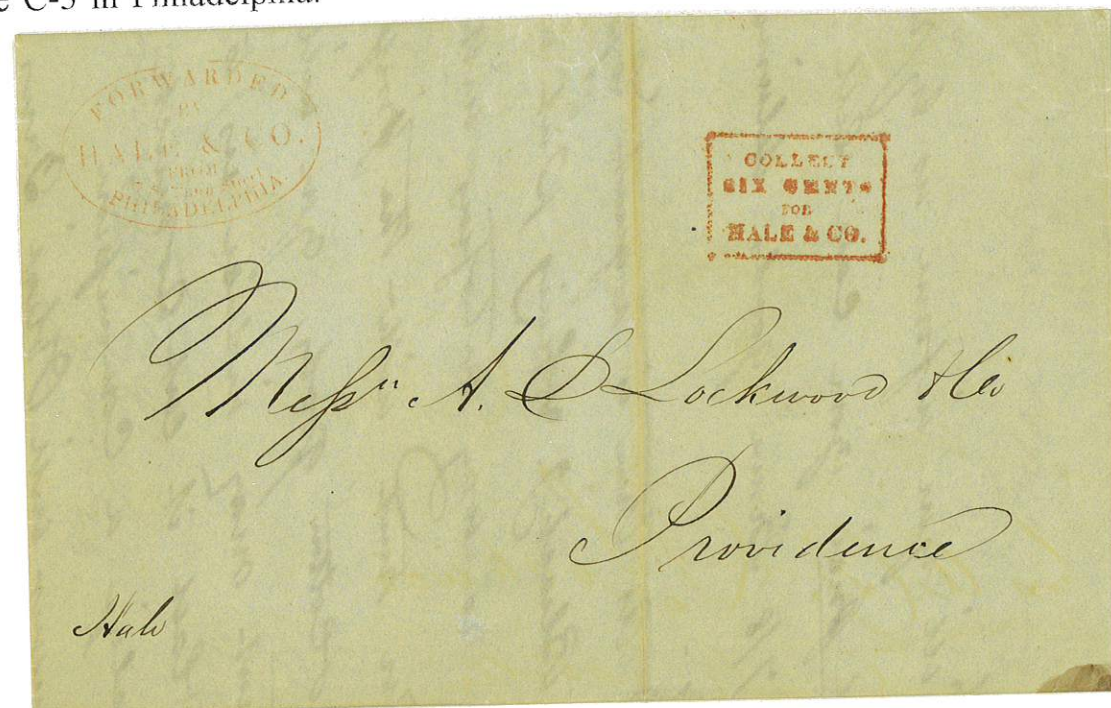 C-5 in Philadelphia.
FORWARDED
BY
HALE & CO.
FROM
Street
PHILADELPHIA
COLLECT
SIX CENTS
FOR
HALE & CO.
Messrs A. D Lockwood & Co
Providence
Hale